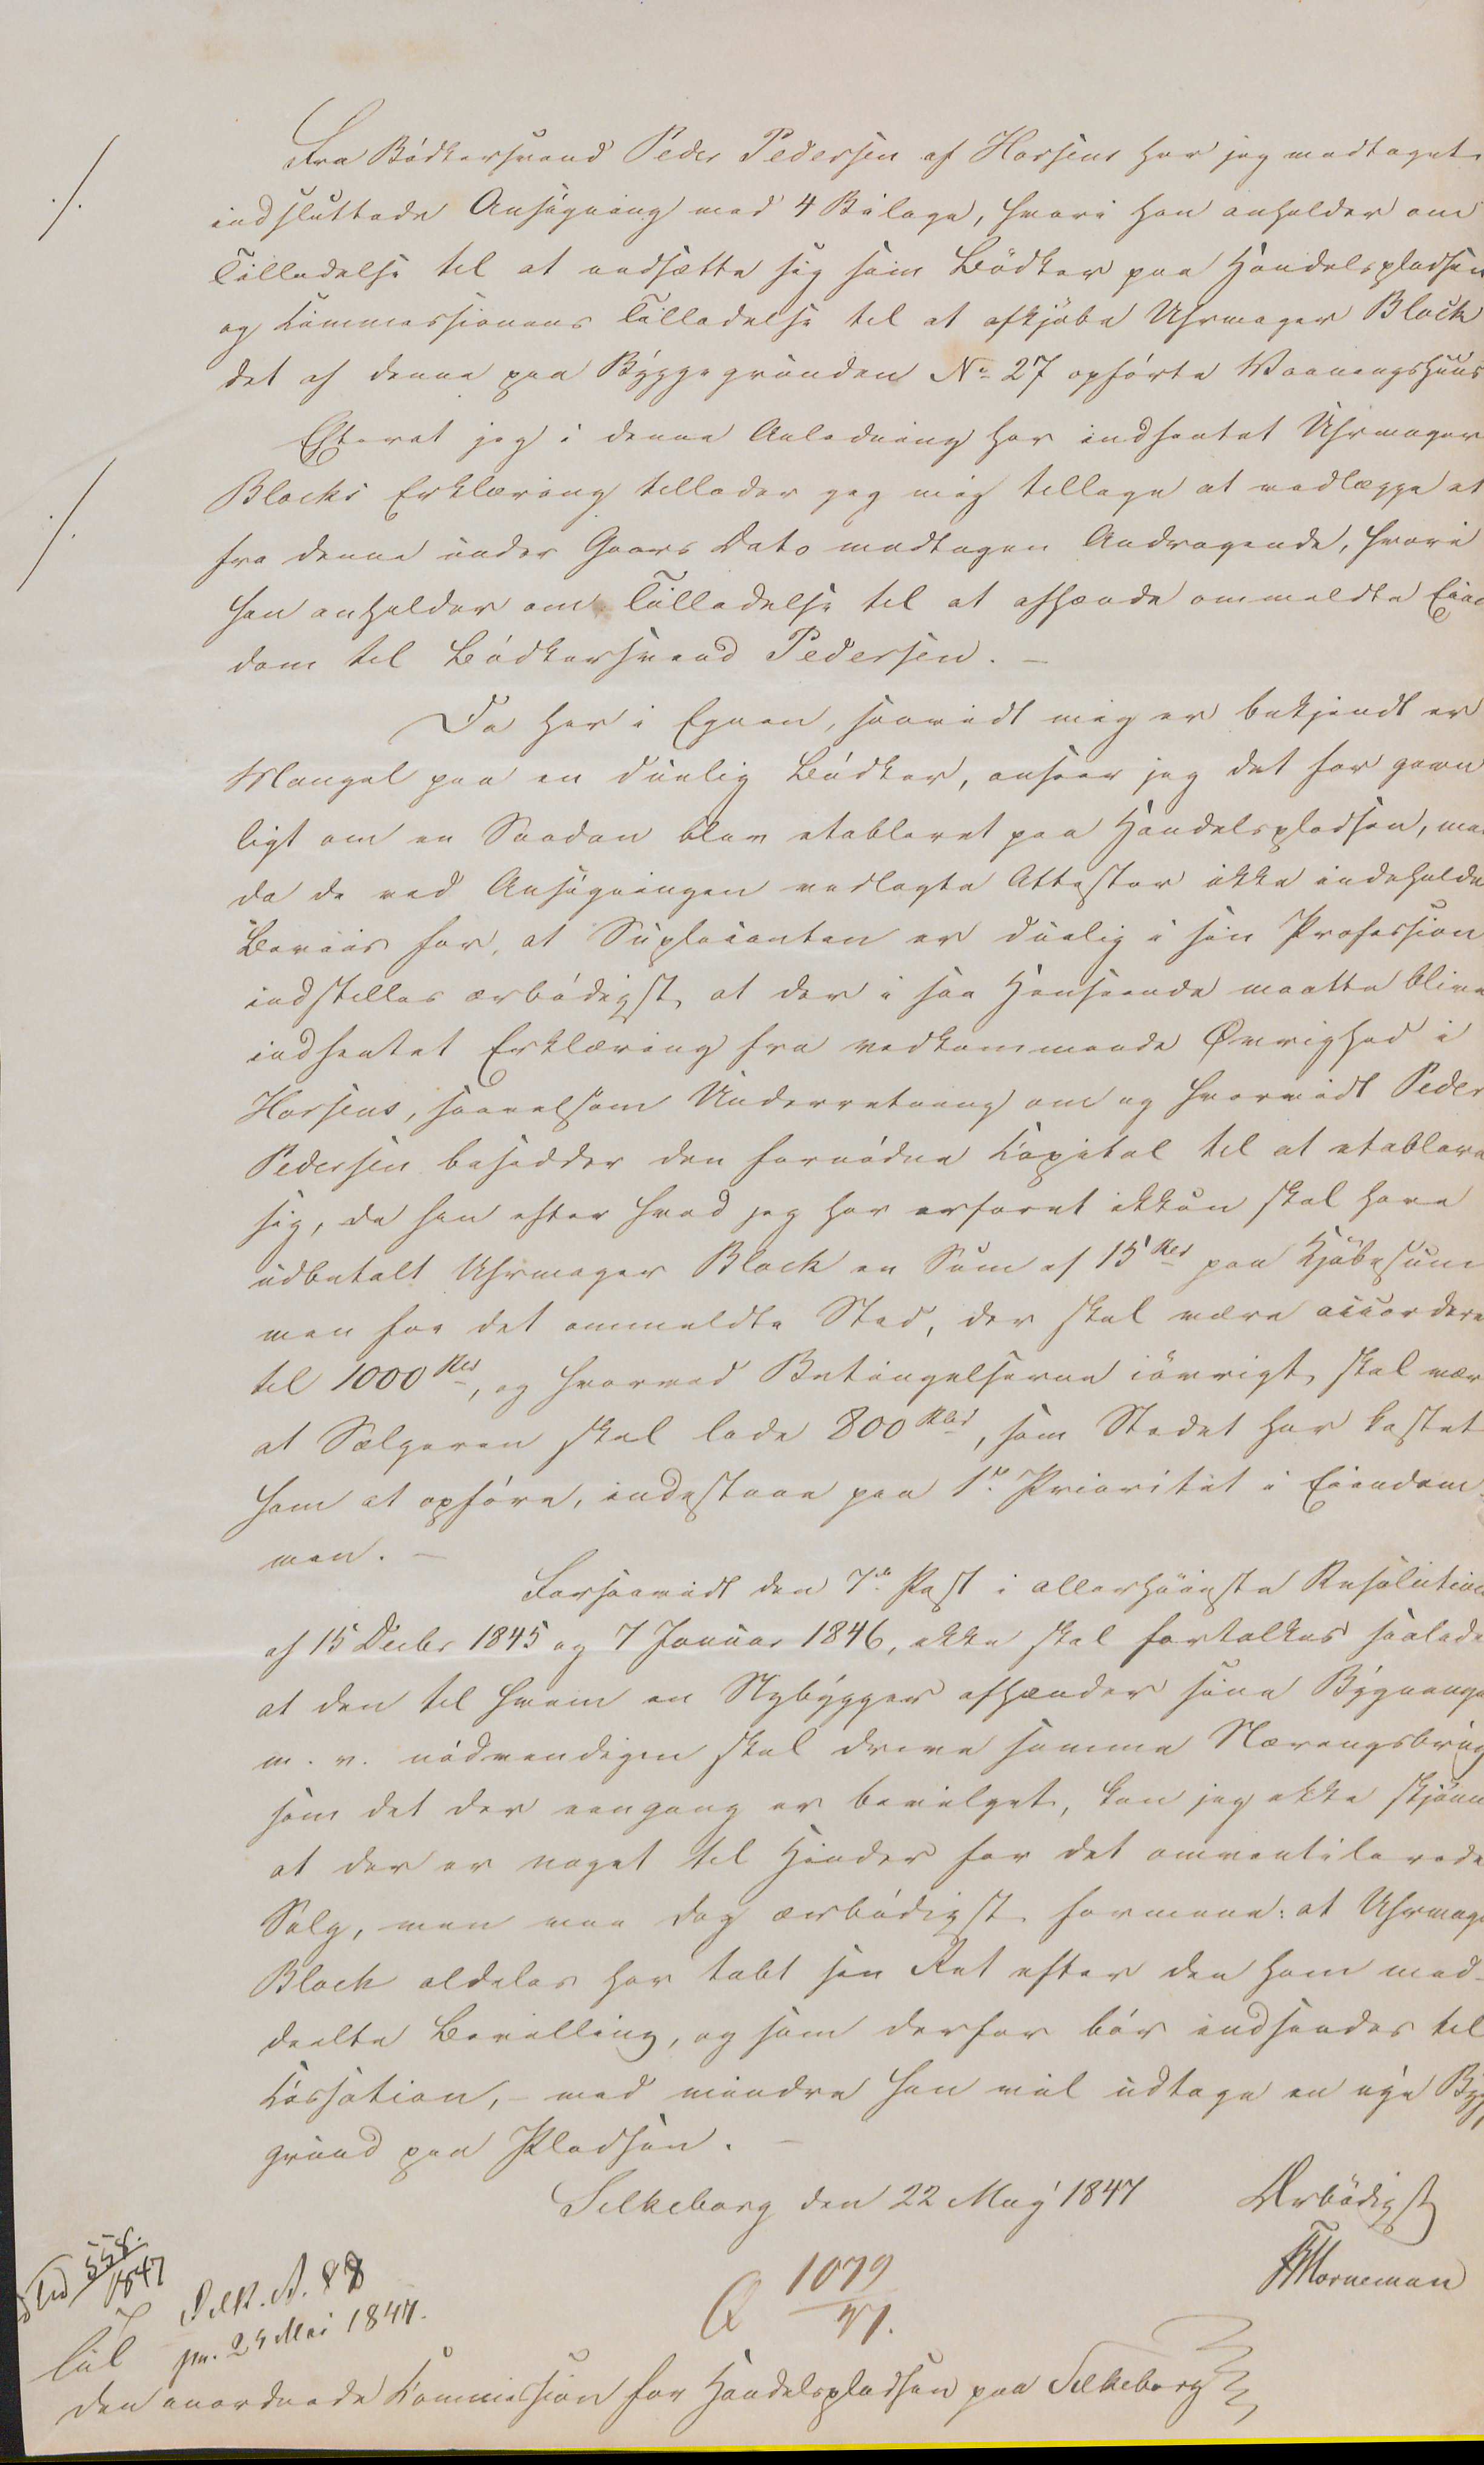 Fra Bödkersvend Peder Pedersen af Horsens har jeg modtaget
./. indsluttede Ansögning med 4 Bilage, hvori han anholder om
Tilladelse til at nedsætte sig som Bödker paa Handelspladsen
og Commissionens Tilladelse til at afkjöbe Uhrmager Block
det af denne paa Byggegrunden No 27 opförte Vaaningshuus
Efterat jeg i denne Anledning har indhentet Uhrmager
Blocks Erklæring tillader jeg mig tillige at vedlægge et
./. fra denne under Gaars Dato modtagen Andragende, hvori
han anholder om Tilladelse til at afhænde ommeldte Eien
dom til Bödkersvend Pedersen. —
Da her i Egnen, saavidt mig er bekjendt er
Mangel paa en duelig Bödker, anseer jeg det for gavn
ligt om en Saadan blev etableret paa Handelspladsen, men
da de ved Ansögningen vedlagte Attester ikke indeholde
Beviis for, at Suplicanten er duelig i sin Profession
indstilles ærbödigst, at der i saa Henseende maatte blive
indhentet Erklæring fra vedkommende Øvrighed i
Horsens, saavelsom Underretning om og hvorvidt Peder
Pedersen besidder den fornödne Capital til at etablere
sig, da han efter hvad jeg har erfaret ikkun skal have
udbetalt Uhrmager Block en Sum af 15 Rbd paa Kjöbesum
men for det ommeldte Sted, der skal være accordere
til 1000 Rbd, og hvorved Betingelserne iövrigt skal vær
at Sælgeren skal lade 800 Rbd, som Stedet har kostet
ham at opföre, indestaae paa 1te Prioritet i Eiendom-
men. —
Forsaavidt den 7de Post i allerhöieste Resolution
af 15 Decbr 1845 og 7 Januar 1846, ikke skal fortolkes saalede
at den til hvem en Nybygger afhænder sine Bygninge
m. v. nödvendigen skal drive samme Næringsbrug
som det der eengang er bevilget, kan jeg ikke skjönne
at der er noget til Hinder for det omventilerede
Salg, men maa dog ærbödigst formene: at Uhrmage
Block aldeles har tabt sin Ret efter den ham med-
deelte Bevilling, og som derfor bör indsendes til
Cassation, – med mindre han vil udtage en nye Bygge
grund paa Pladsen. —
Silkeborg den 22 May 1847 Ærbödigst
Horneman
558.
1847
Silk. A. 88
pr. 24 Mai 1847.
Q 1079
47.
Til
den anordnede Commission for Handelspladsen paa Silkeborg